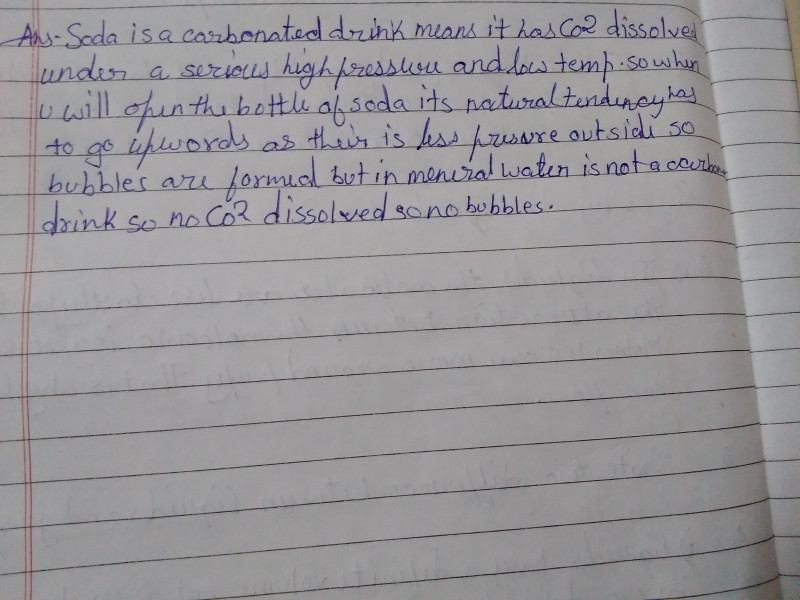 Ans- Soda is a carbonated drink means it has Co2 dissolved
under a serious high pressure and low temp. so when
u will open the bottle of soda its natural tendency has
to go upwords as their is less presure outside so
bubbles are formed but in meneral water is not a
drink so no Co2 dissolved so no bubbles.